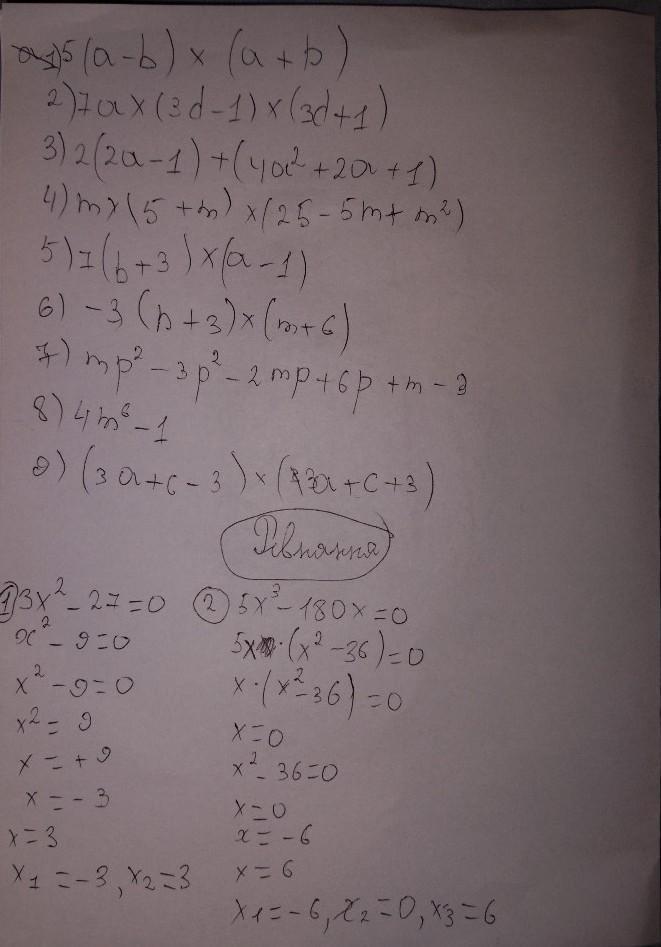 1) 5(a-b) × (a+b)
2) 7a×(3d-1)×(3d+1)
3) 2(2a-1)+(4a²+2a+1)
4) m×(5+m)×(25-5m+m²)
5) 7(b+3)×(a-1)
6) -3(n+3)×(m+6)
7) mp²-3p²-2mp+6p+m-3
8) 4m⁶-1
9) (3a+c-3)×(3a+c+3)
Рівняння
① 3x²-27=0
x²-9=0
x²-9=0
x²=9
x=+9
x=-3
x=3
x1=-3, x2=3
② 5x³-180x=0
5x·(x²-36)=0
x·(x²-36)=0
x=0
x²-36=0
x=0
x=-6
x=6
x1=-6, x2=0, x3=6